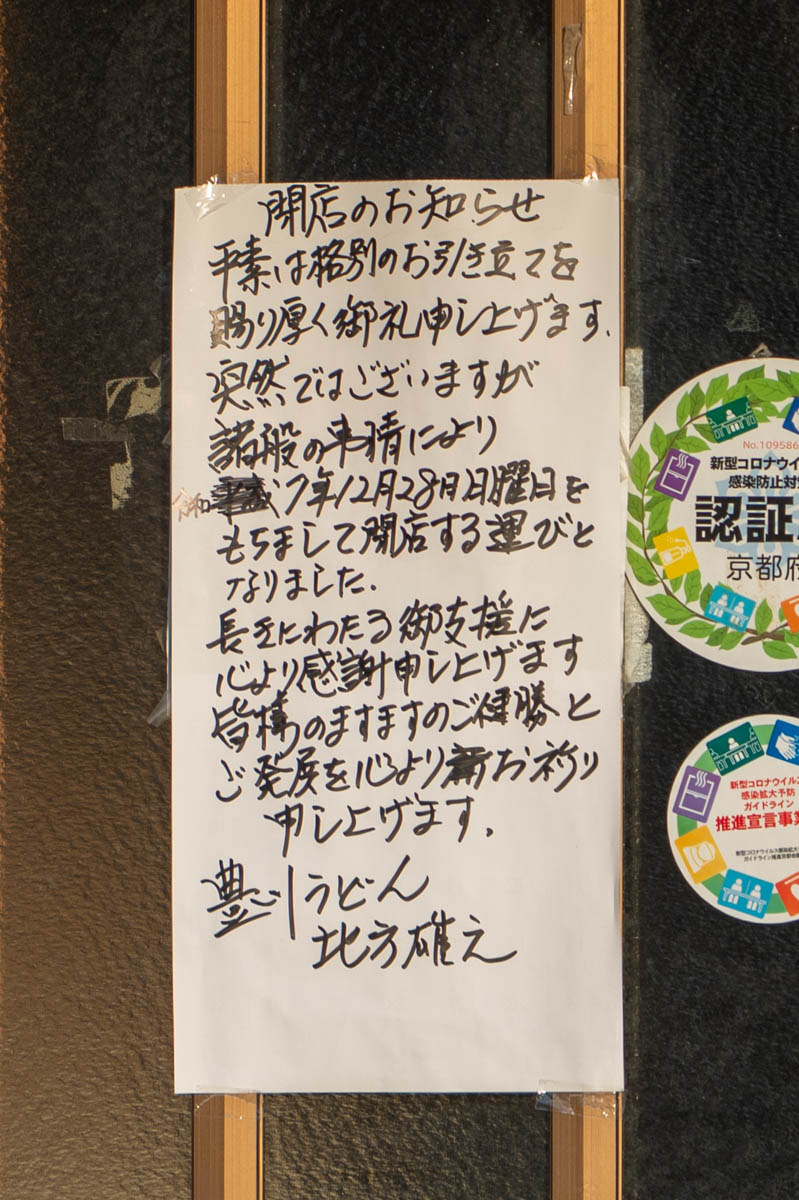 閉店のお知らせ
平素は格別のお引き立てを
賜り厚く御礼申し上げます.
突然ではございますが
諸般の事情により
令和7年12月28日日曜日を
もちまして閉店する運びと
なりました.
長きにわたる御支援に
心より感謝申し上げます
皆様のますますのご健勝と
ご発展を心よりお祈り
申し上げます.
豊川うどん
北方雄え
No.109586
新型コロナウイ
感染防止対
認証
京都府
新型コロナウイルス
感染拡大予防
ガイドライン
推進宣言事業
新型コロナウイルス感染拡大
ガイドライン推進京都会議